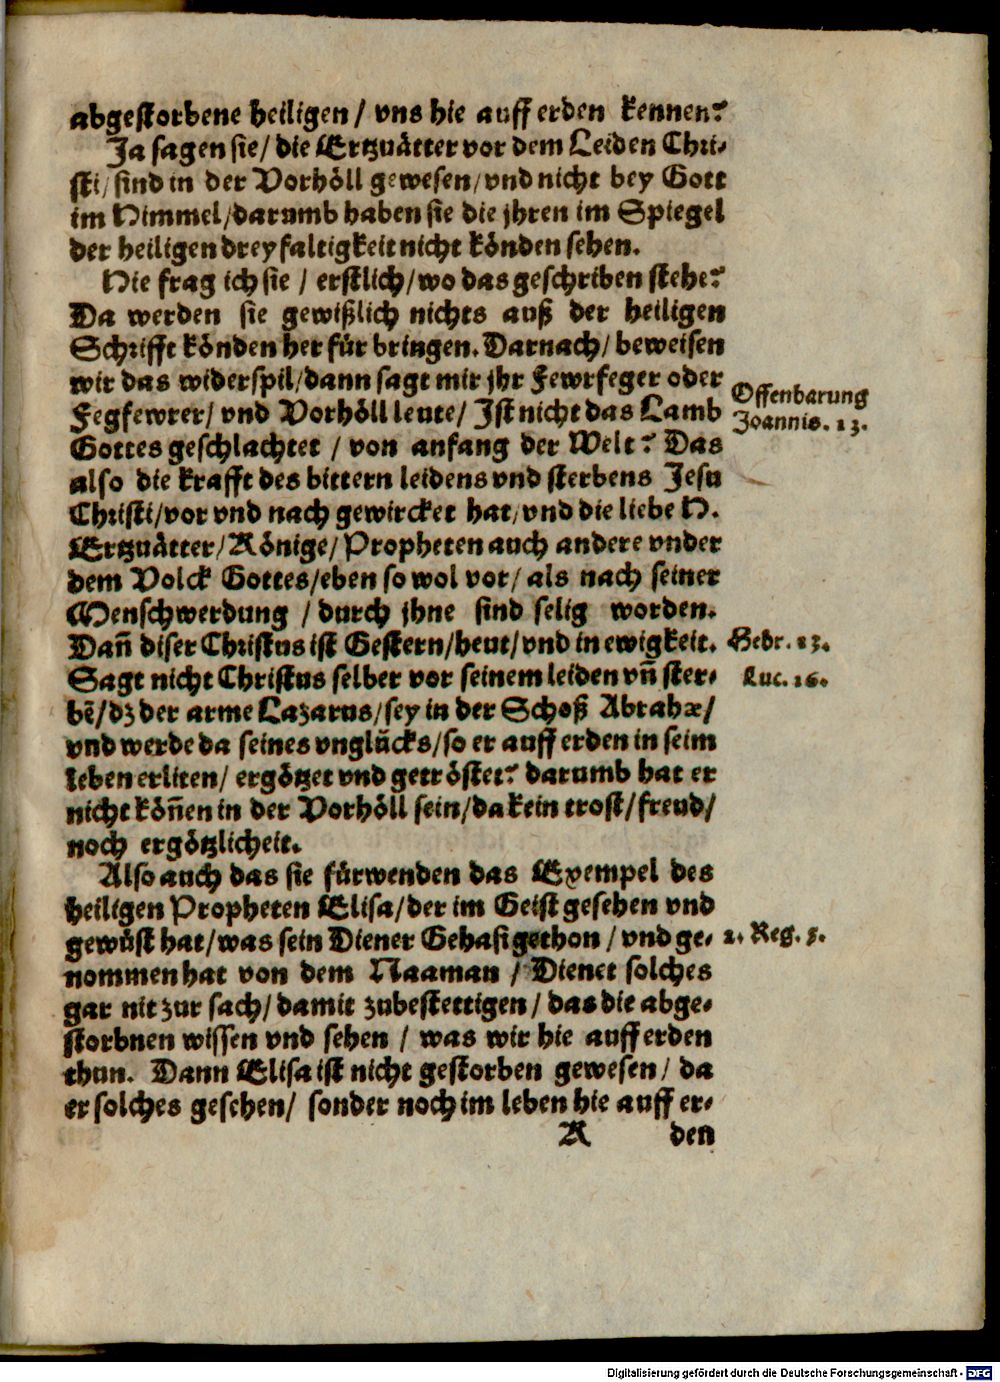 abgestorbene heiligen / vns hie auff erden kennen?
Ja sagen sie / die Ertzuätter vor dem Leiden Chri-
sti / sind in der Vorhöll gewesen / vnd nicht bey Gott
im Himmel / darumb haben sie die jhren im Spiegel
der heiligen dreyfaltigkeit nicht könden sehen.
Hie frag ich sie / erstlich / wo das geschriben stehe?
Da werden sie gewißlich nichts auß der heiligen
Schrifft könden her für bringen. Darnach / beweisen
wir das widerspil / dann sagt mir jhr Fewrfeger oder
Fegfewrer / vnd Vorhöll leute / Ist nicht das Lamb
Offenbarung
Joannis. 13.
Gottes geschlachtet / von anfang der Welt? Das
also die krafft des bittern leidens vnd sterbens Jesu
Christi / vor vnd nach gewircket hat / vnd die liebe H.
Ertzuätter / Könige / Propheten auch andere vnder
dem Volck Gottes / eben so wol vor / als nach seiner
Menschwerdung / durch jhne sind selig worden.
Dañ diser Christus ist Gestern / heut / vnd in ewigkeit.
Hebr. 13.
Sagt nicht Christus selber vor seinem leiden vñ ster-
Luc. 16.
bē / dz der arme Lazarus / sey in der Schoß Abrahæ /
vnd werde da seines vnglücks / so er auff erden in seim
leben erliten / ergötzet vnd getröstet? darumb hat er
nicht köñen in der Vorhöll sein / da kein trost / freud /
noch ergötzlicheit.
Also auch das sie fürwenden das Exempel des
heiligen Propheten Elisa / der im Geist gesehen vnd
gewüst hat / was sein Diener Gehasi gethon / vnd ge-
2. Reg. 5.
nommen hat von dem Naaman / Dienet solches
gar nit zur sach / damit zubestettigen / das die abge-
storbnen wissen vnd sehen / was wir hie auff erden
thun. Dann Elisa ist nicht gestorben gewesen / da
er solches gesehen / sonder noch im leben hie auff er-
A den
Digitalisierung gefördert durch die Deutsche Forschungsgemeinschaft - DFG